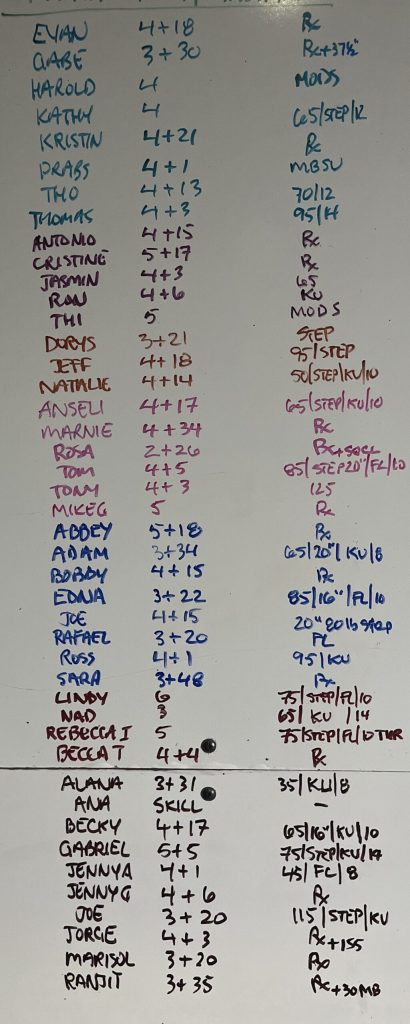 EVAN 4+18 Rx
GABE 3+30 Rx+37½
HAROLD 4 MODS
KATHY 4 65/STEP/12
KRISTIN 4+21 Rx
PRABS 4+1 MBSU
THO 4+13 70/12
THOMAS 4+3 95/14
ANTONIO 4+15 Rx
CRISTINE 5+17 Rx
JASMIN 4+3 65
RON 4+6 KU
THI 5 MODS
DORYS 3+21 STEP
JEFF 4+18 95/STEP
NATALIE 4+14 50/STEP/KU/10
ANSELI 4+17 65/STEP/KU/10
MARNIE 4+34 Rx
ROSA 2+26
TOM 4+5 85/STEP20"/FL/10
TONY 4+3 125
MIKEG 5 Rx
ABBEY 5+18 Rx
ADAM 3+34 65/20"/KU/8
BOBBY 4+15 Rx
EDNA 3+22 85/16"/FL/10
JOE 4+15 20" 80lb STEP
RAFAEL 3+20 FL
ROSS 4+1 95/KU
SARA 3+48 Rx
LINDY 6 75/STEP/FL/10
NAD 3 65/KU/14
REBECCA I 5 75/STEP/FL/10
BECCA T 4+4 Rx
ALANA 3+31 35/KU/8
ANA SKILL –
BECKY 4+17 65/16"/KU/10
GABRIEL 5+5 75/STEP/KU/14
JENNYA 4+1 45/FL/8
JENNYG 4+6 Rx
JOE 3+20 115/STEP/KU
JORGE 4+3 Rx+155
MARISOL 3+20 Rx
RANJIT 3+35 Rx+30MB